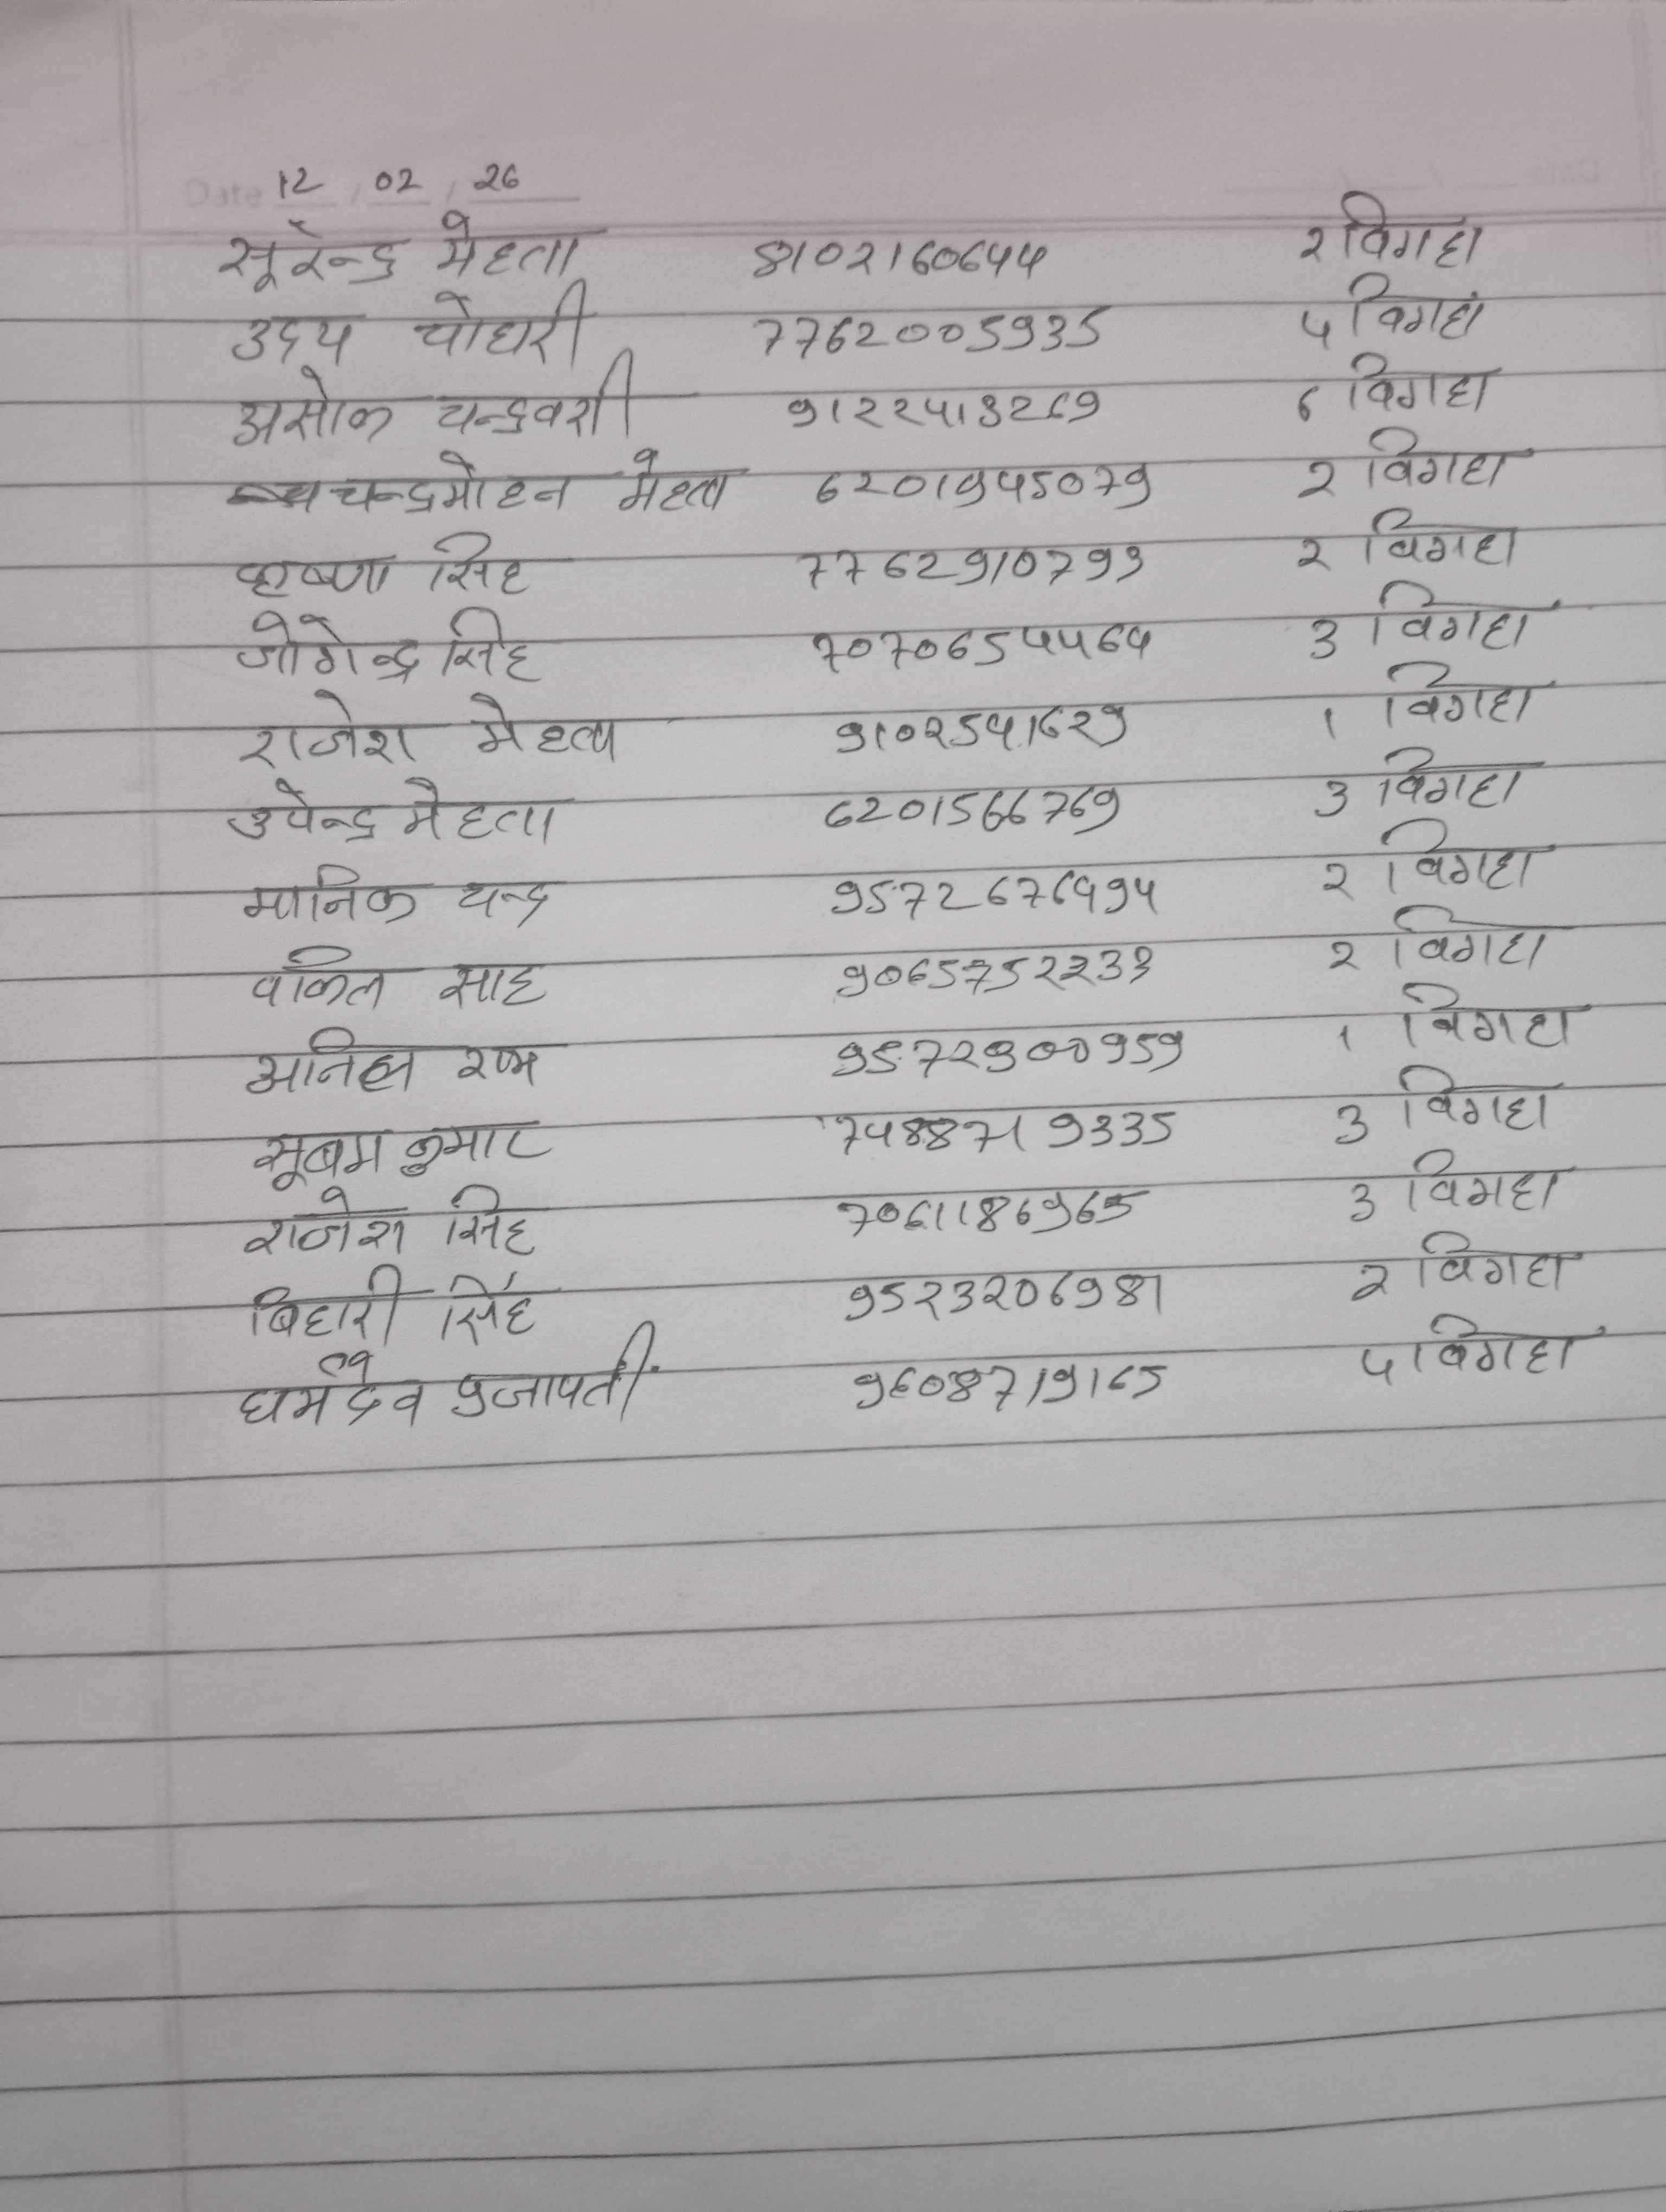 Date 12 / 02 / 26
सूरेन्द्र मेहता 8102160644 2 विगहा
उदय चोधरी 7762005935 5 विगहा
असोक चन्द्रवसी 9122413269 6 विगहा
चन्द्रमोहन मेहता 6201945079 2 विगहा
कृष्णा सिह 7762910793 2 विगहा
जोगेन्द्र सिह 7070654464 3 विगहा
राजेश मेहता 9102541629 1 विगहा
उपेन्द्र मेहता 6201566769 3 विगहा
मानिक चन्द्र 9572676494 2 विगहा
वकिल साह 9065752233 2 विगहा
अनिल राम 9572900959 1 विगहा
सूबम कुमार 7488719335 3 विगहा
राजेश सिह 7061186965 3 विगहा
बिहारी सिंह 9523206981 2 विगहा
धर्मदेव प्रजापती 9608719165 5 विगहा